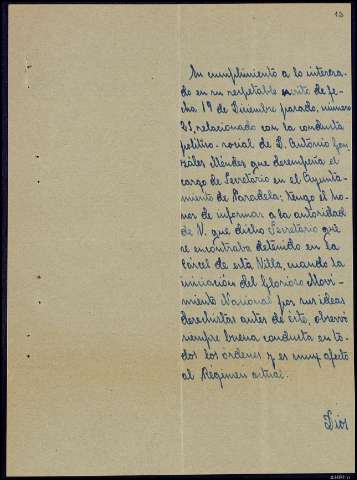 13
En cumplimiento a lo interesa-
do en su respetable escrito de fe-
cha 19 de Diciembre pasado, número
21, relacionado con la conducta
politico-social de D. Antonio Gon-
zález Méndes que desempeña el
cargo de Secretario en el Ayunta-
miento de Paradela; tengo el ho-
nor de informar a la autoridad
de V. que dicho Secretario que
se encontraba detenido en la
Cárcel de esta Villa, cuando la
iniciación del Glorioso Movi-
miento Nacional por sus ideas
derechistas antes de éste, observó
siempre buena conducta en to-
dos los ordenes y es muy afecto
al Régimen actual.
Dios